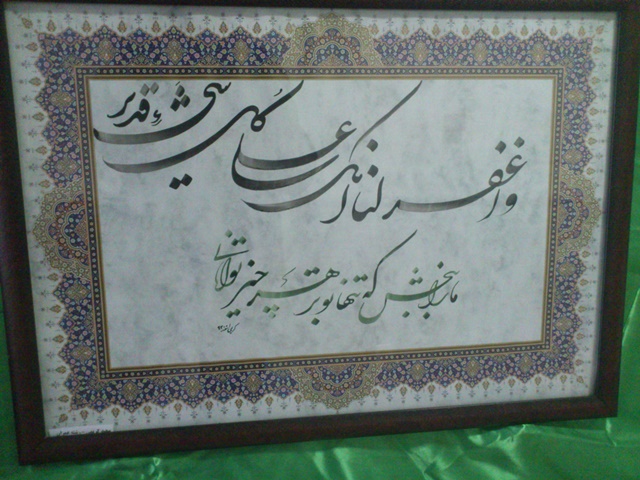 واغفر لنا انک علی کل شیء قدیر
ما را ببخش که تنها تو بر هر چیز توانائی